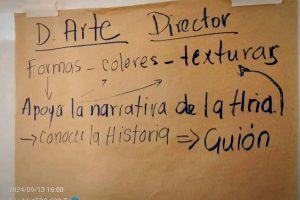 D. Arte Director
Formas - colores - texturas
Apoya la narrativa de la Hria.
→ Conocer la Historia ⇒ Guión
2024/09/13 16:00